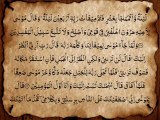 لَيْلَةً وَأَتْمَمْنَاهَا بِعَشْرٍ فَتَمَّ مِيقَاتُ رَبِّهِ أَرْبَعِينَ لَيْلَةً وَقَالَ مُوسَى
لِأَخِيهِ هَارُونَ اخْلُفْنِي فِي قَوْمِي وَأَصْلِحْ وَلَا تَتَّبِعْ سَبِيلَ الْمُفْسِدِينَ
وَلَمَّا جَاءَ مُوسَى لِمِيقَاتِنَا وَكَلَّمَهُ رَبُّهُ قَالَ رَبِّ أَرِنِي أَنْظُرْ إِلَيْكَ
قَالَ لَنْ تَرَانِي وَلَكِنِ انْظُرْ إِلَى الْجَبَلِ فَإِنِ اسْتَقَرَّ مَكَانَهُ فَسَوْفَ
تَرَانِي فَلَمَّا تَجَلَّى رَبُّهُ لِلْجَبَلِ جَعَلَهُ دَكًّا وَخَرَّ مُوسَى صَعِقًا
فَلَمَّا أَفَاقَ قَالَ سُبْحَانَكَ تُبْتُ إِلَيْكَ وَأَنَا أَوَّلُ الْمُؤْمِنِينَ
قَالَ يَا مُوسَى إِنِّي اصْطَفَيْتُكَ عَلَى النَّاسِ بِرِسَالَاتِي وَبِكَلَامِي فَخُذْ مَا آتَيْتُكَ